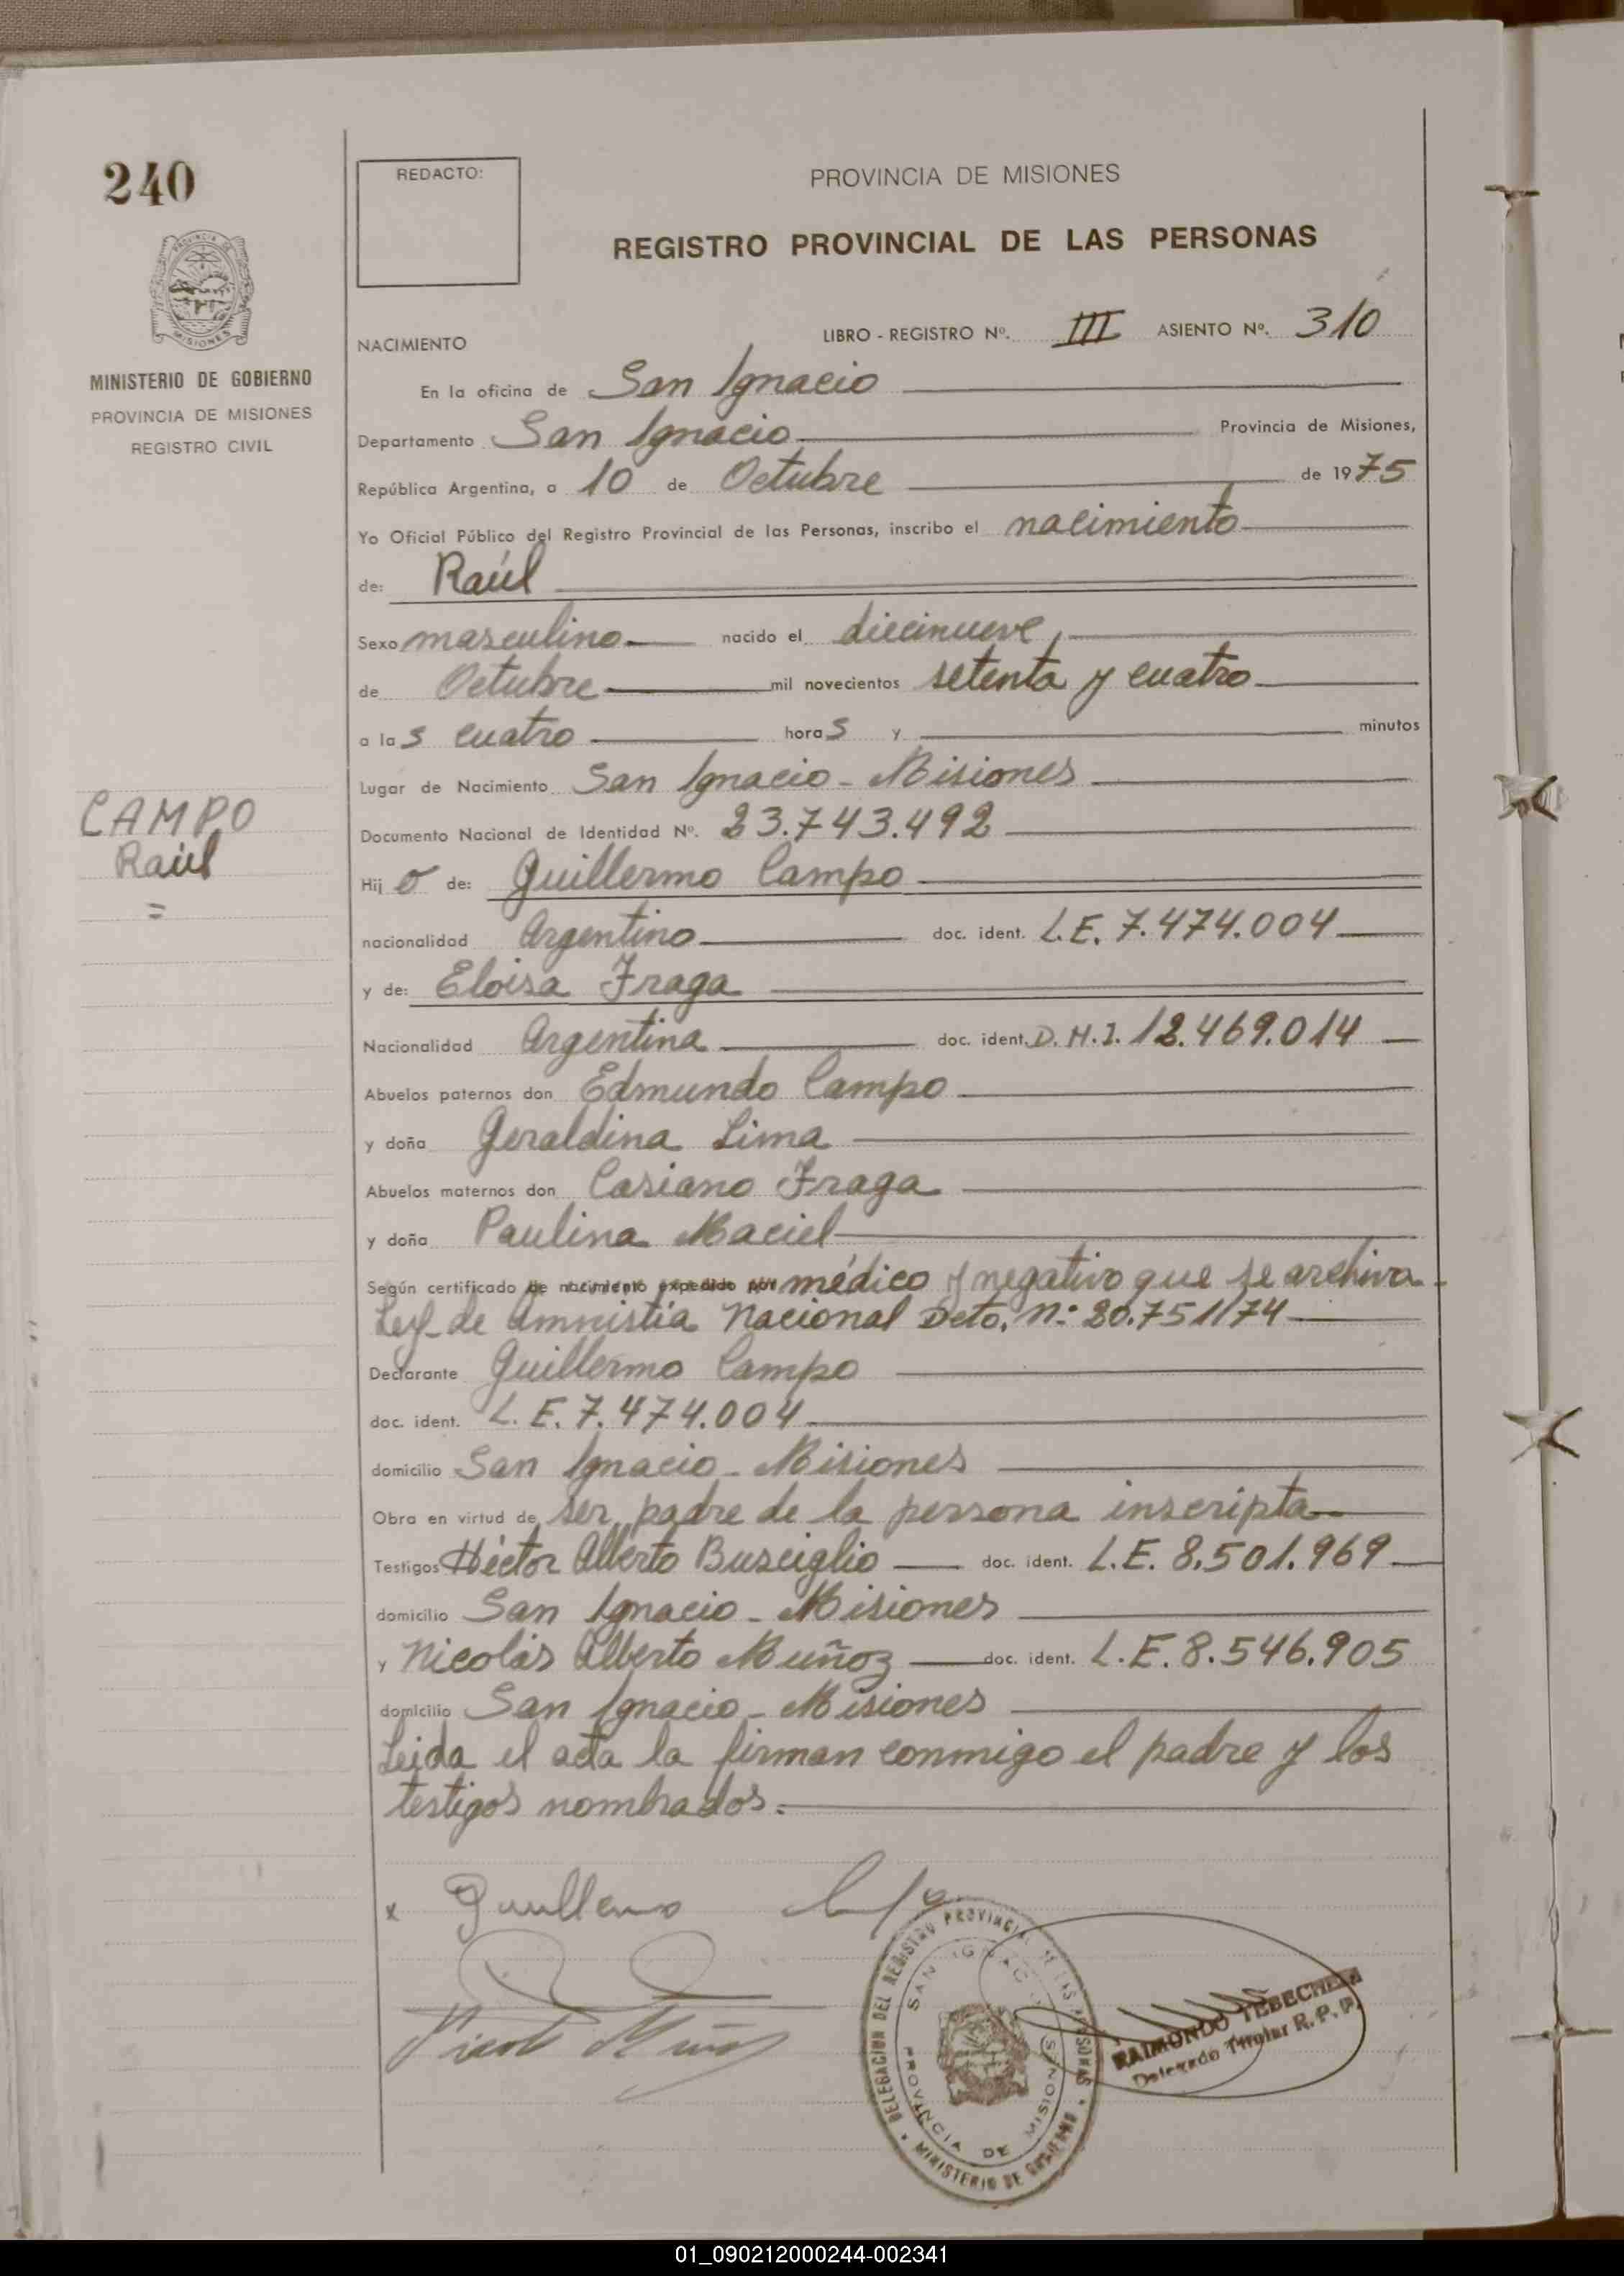 240
REDACTO:
PROVINCIA DE MISIONES
REGISTRO PROVINCIAL DE LAS PERSONAS
NACIMIENTO
LIBRO - REGISTRO Nº. III ASIENTO Nº. 310
MINISTERIO DE GOBIERNO
PROVINCIA DE MISIONES
REGISTRO CIVIL
En la oficina de San Ignacio
Departamento San Ignacio Provincia de Misiones,
República Argentina, a 10 de Octubre de 1975
Yo Oficial Público del Registro Provincial de las Personas, inscribo el nacimiento
de: Raúl
Sexo masculino nacido el diecinueve
de Octubre mil novecientos setenta y cuatro
a las cuatro horas y minutos
Lugar de Nacimiento San Ignacio - Misiones
CAMPO
Raúl
Documento Nacional de Identidad Nº. 23.743.492
Hijo de: Guillermo Campo
nacionalidad Argentino doc. ident. L.E. 7.474.004
y de: Eloisa Fraga
Nacionalidad Argentina doc. ident. D.N.I. 12.469.014
Abuelos paternos don Edmundo Campo
y doña Geraldina Lima
Abuelos maternos don Casiano Fraga
y doña Paulina Maciel
Según certificado de nacimiento expedido por médico y negativo que se archiva -
Ley de Amnistía Nacional Dcto. Nº 20.751/74
Declarante Guillermo Campo
doc. ident. L.E. 7.474.004
domicilio San Ignacio - Misiones
Obra en virtud de ser padre de la persona inscripta
Testigos Héctor Alberto Busciglio doc. ident. L.E. 8.501.969
domicilio San Ignacio - Misiones
y Nicolás Alberto Muñoz doc. ident. L.E. 8.546.905
domicilio San Ignacio - Misiones
Leida el acta la firman conmigo el padre y los
testigos nombrados.
x Guillermo
DELEGACION DEL REGISTRO PROVINCIAL DE LAS PERSONAS
SAN IGNACIO
PROVINCIA DE MISIONES
MINISTERIO DE GOBIERNO
RAIMONDO
Delegado Titular R.P.P.
01_090212000244-002341